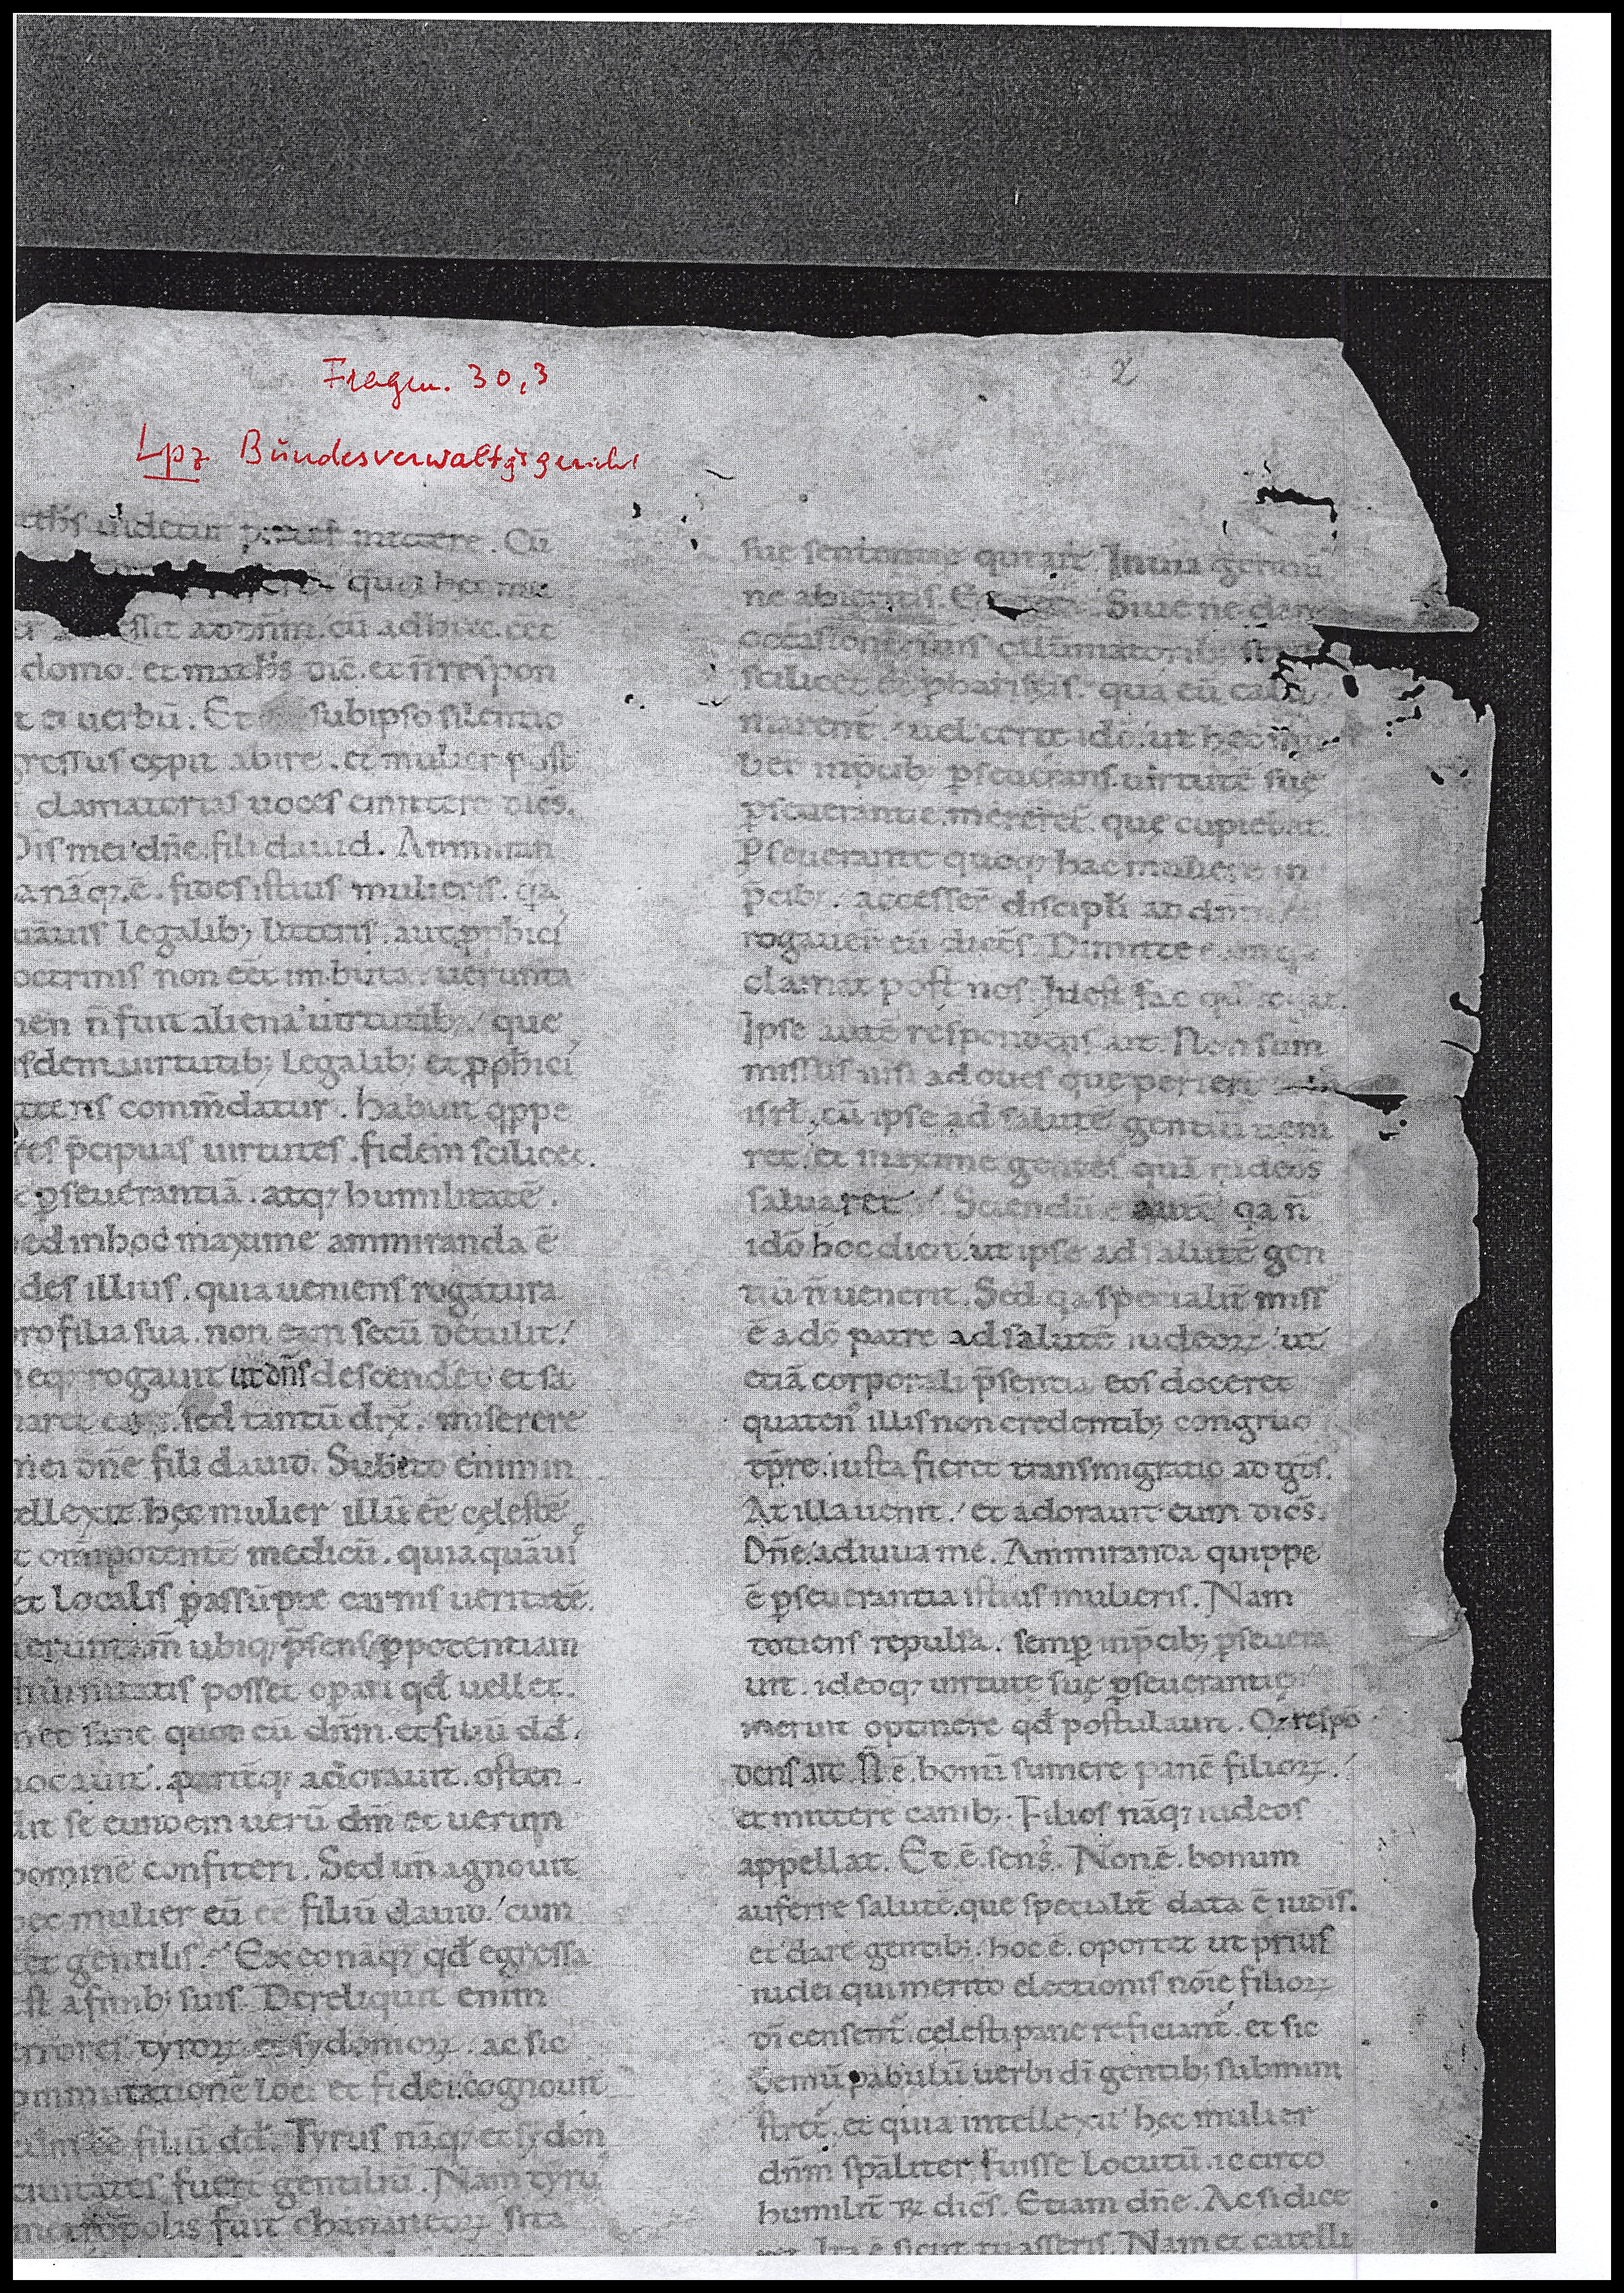 Fragm. 30,3
2
Lpz Bundesverwaltgsgericht
uidetur mittere. Cū
qua hec mu
cū adhuc. eēt
domo. et marcꝰ dic̄. et n̄ respon
t ei uerbū. Et sub ipso silentio
gressus cępit abire. et mulier post
clamatorias uoces emittere dicēs.
mei dn̄e. fili dauid. Ammiran
a nāq; ē. fides istius mulieris. q̄a
uāuis legalib; litteris. aut ꝓph̄ici
octrinis non eēt imbuta. uerunta
men n̄ fuit aliena uirtutib; que
isdem uirtutib; legalib; et ꝓph̄ici
litteris comm̄datur. habuit q̄ppe
res p̄cipuas uirtutes. fidem scilicet.
ꝑseuerantiā. atq; humilitatē.
ed in hoc maxime ammiranda ē
des illius. quia ueniens rogatura
pro filia sua. non eam secū detulit.
neq; rogauit ut dn̄s descenderet et sa
naret eam. sed tantū dix̄. miserere
mei dn̄e fili dauid. Subito enim in
tellexit hęc mulier illū eē cęlestē
t om̄ipotentē medicū. quia quāuis
et localis ꝑ assūptę carnis ueritatē.
ueruntam̄ ubiq; p̄sens ꝑ potentiam
diuinitatis posset opari qd̄ uellet.
sane quod cū dn̄m. et filiū dd̄.
uocauit. pariteq; adorauit. osten
dit se eundem uerū dm̄ et uerum
hominē confiteri. Sed un̄ agnouit
hec mulier eū eē filiū dauid. cum
eēt gentilis. Ex eo nāq; qd̄ egressa
est a finib; suis. Dereliquit enim
errores tyroꝝ et sydonioꝝ. ac sic
commutatione loci et fidei cognouit
eē filiū dd̄. Tyrus nāq; et sydon
ciuitates fuer̄ gentiliū. Nam tyrus
metropolis fuit chananeoꝝ sita
sue sententie qui ait. In uia gentiū
ne abieritis. Siue ne daret
occasionē suis calūmatorib; scribis
scilicet et pharisęis. qua eū calū
marent̄. uel certe idō. ut hec mu
lier in p̄cib; ꝑseuerans. uirtutē suę
ꝑseuerantie. mereret̄. que cupiebat.
Pseuerante quoq; hac muliere in
p̄cib; accesser̄ discipl̄i ad dn̄m
rogauer̄ eū dicēs. Dimitte eam q̄a
clamat post nos. Id est fac qd̄ rogat.
Ipse autē respondens ait. Non sum
missus nisi ad oues que perier̄
isrl̄. cū ipse ad salutē gentiū ueni
ret. et maxime gentes quā iudeos
saluaret. Sciendū ē autē q̄a n̄
idō hoc dicit. ut ipse ad salutē gen
tiū n̄ uenerit. Sed q̄a specialit̄ miss
ē a dō patre ad salutē iudeoꝝ. ut
etiā corporali p̄sentia eos doceret
quaten ꝰ illis non credentib; congruo
tp̄re. iusta fieret transmigratio ad gt̄s.
At illa uenit. et adorauit eum dicēs.
Dn̄e. adiuua me. Ammiranda quippe
ē ꝑseuerantia istius mulieris. Nam
totiens repulsa. semp in p̄cib; ꝑseuera
uit. ideoq; uirtute suę ꝑseuerantię
meruit optinere qd̄ postulauit. Q respō
dens ait. N̄ ē. bonū sumere panē filioꝝ.
et mittere canib;. Filios nāq; iudeos
appellat. Et ē. sensꝰ. Non ē. bonum
auferre salutē. que specialit̄ data ē iud̄is.
et dare gentib;. hoc ē. oportet ut prius
iudei qui merito electionis noīe filioꝝ
dī censent̄. cęlesti pane reficiant̄. et sic
demū pabulū uerbi dī gentib; submini
stret̄. et quia intellexit hęc mulier
dn̄m spāliter fuisse locutū. iccirco
humilit̄ R dicēs. Etiam dn̄e. Ac si dice
Ita ē sicut tu asseris. Nam et catelli